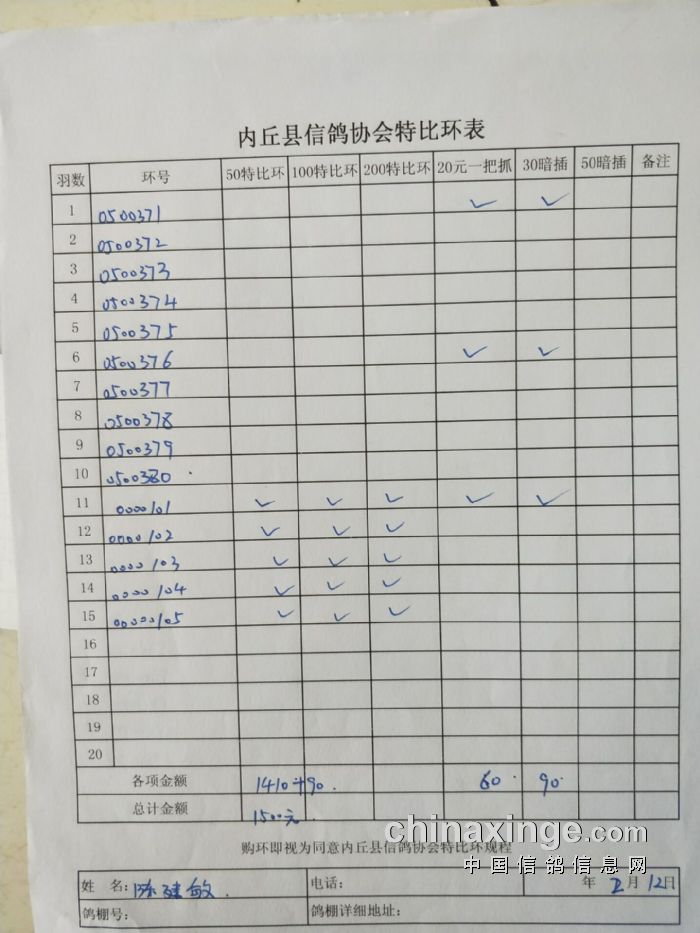 内丘县信鸽协会特比环表
羽数 环号 50特比环 100特比环 200特比环 20元一把抓 30暗插 50暗插 备注
1 0500371 ✓ ✓
2 0500372
3 0500373
4 0500374
5 0500375
6 0500376 ✓ ✓
7 0500377
8 0500378
9 0500379
10 0500380
11 0000101 ✓ ✓ ✓ ✓ ✓
12 0000102 ✓ ✓ ✓
13 0000103 ✓ ✓ ✓
14 0000104 ✓ ✓ ✓
15 00000105 ✓ ✓ ✓
16
17
18
19
20
各项金额 1410+90. 60. 90.
总计金额 1500元.
购环即视为同意内丘县信鸽协会特比环规程
chinaxinge.com
中国信鸽信息网
姓 名:陈建敏. 电话: 年 2月12日
鸽棚号: 鸽棚详细地址: